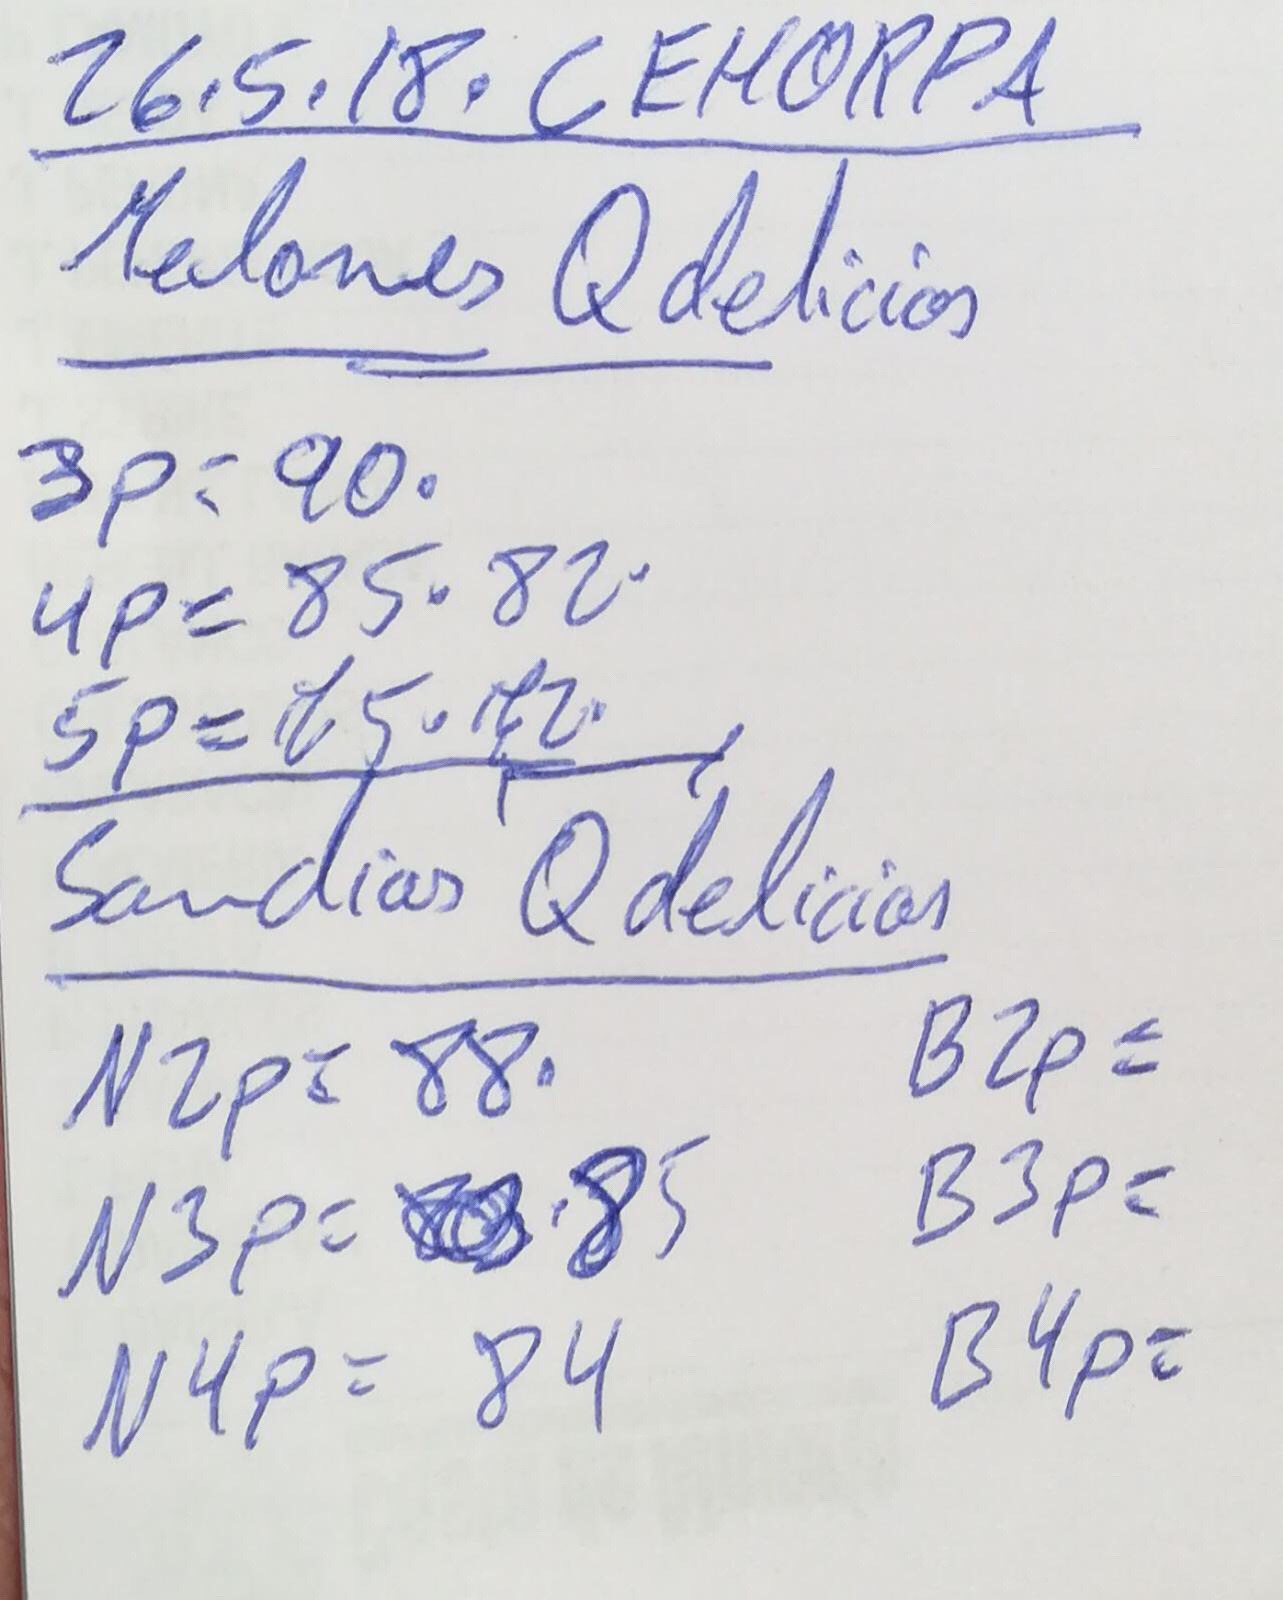 26.5.18. CEHORPA
Melones Q delicias
3p= 90.
4p= 85. 82.
5p= 75. 72.
Sandias Q delicias
N2p= 88. B2p=
N3p= .85 B3p=
N4p= 84 B4p=